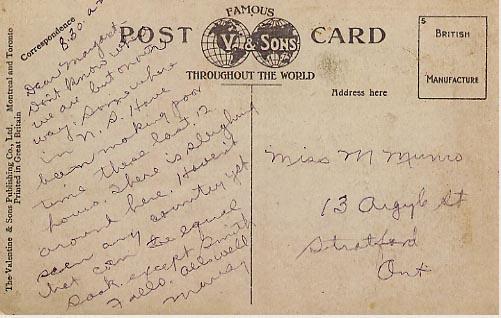 FAMOUS
POST CARD
V. & SONS
THROUGHOUT THE WORLD
S
BRITISH
MANUFACTURE
Correspondence
Address here
The Valentine & Sons Publishing Co., Ltd. Montreal and Toronto
Printed in Great Britain
8.30
Dear Margaret
Don't know where
we are but on our
way. Somewhere
in N. S. Have
been making poor
time these last 12
hours. There is sleighing
around here. Haven't
seen any country yet
that can equal
Sask. except Smith
Falls. All's well
Miss M Munro
13 Argyle St
Stratford
Ont